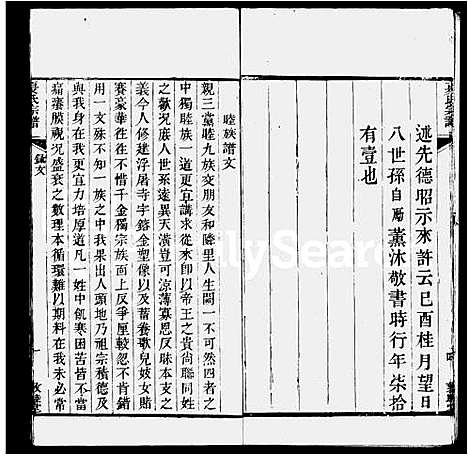 述先德昭示來許云己酉桂月望日
八世孫自屬薰沐敬書時行年柒拾
有壹也
睦族譜文
親三黨睦九族交朋友和隣里人生闕一不可然四者之
中獨睦族一道更宜講求從來師以帝王之貴尚聯同姓
之歡況庶人世系遠異天潢豈可涼薄寡恩反昧本支之
義今人修建浮屠寺字鎔金塑像以及蓄養歌兒妓女賭
賽豪華往往不惜千金獨宗族面上反爭厘較忽不肯錯
用一文殊不知一族之中我果出人頭地乃祖宗積德及
與我身在我更宜力培厚道凡一姓中飢寒困苦皆不當
痛癢膜視况盛衰之數理本循環難以期料在我未必常
夏氏宗譜
敘文
FamilySearch